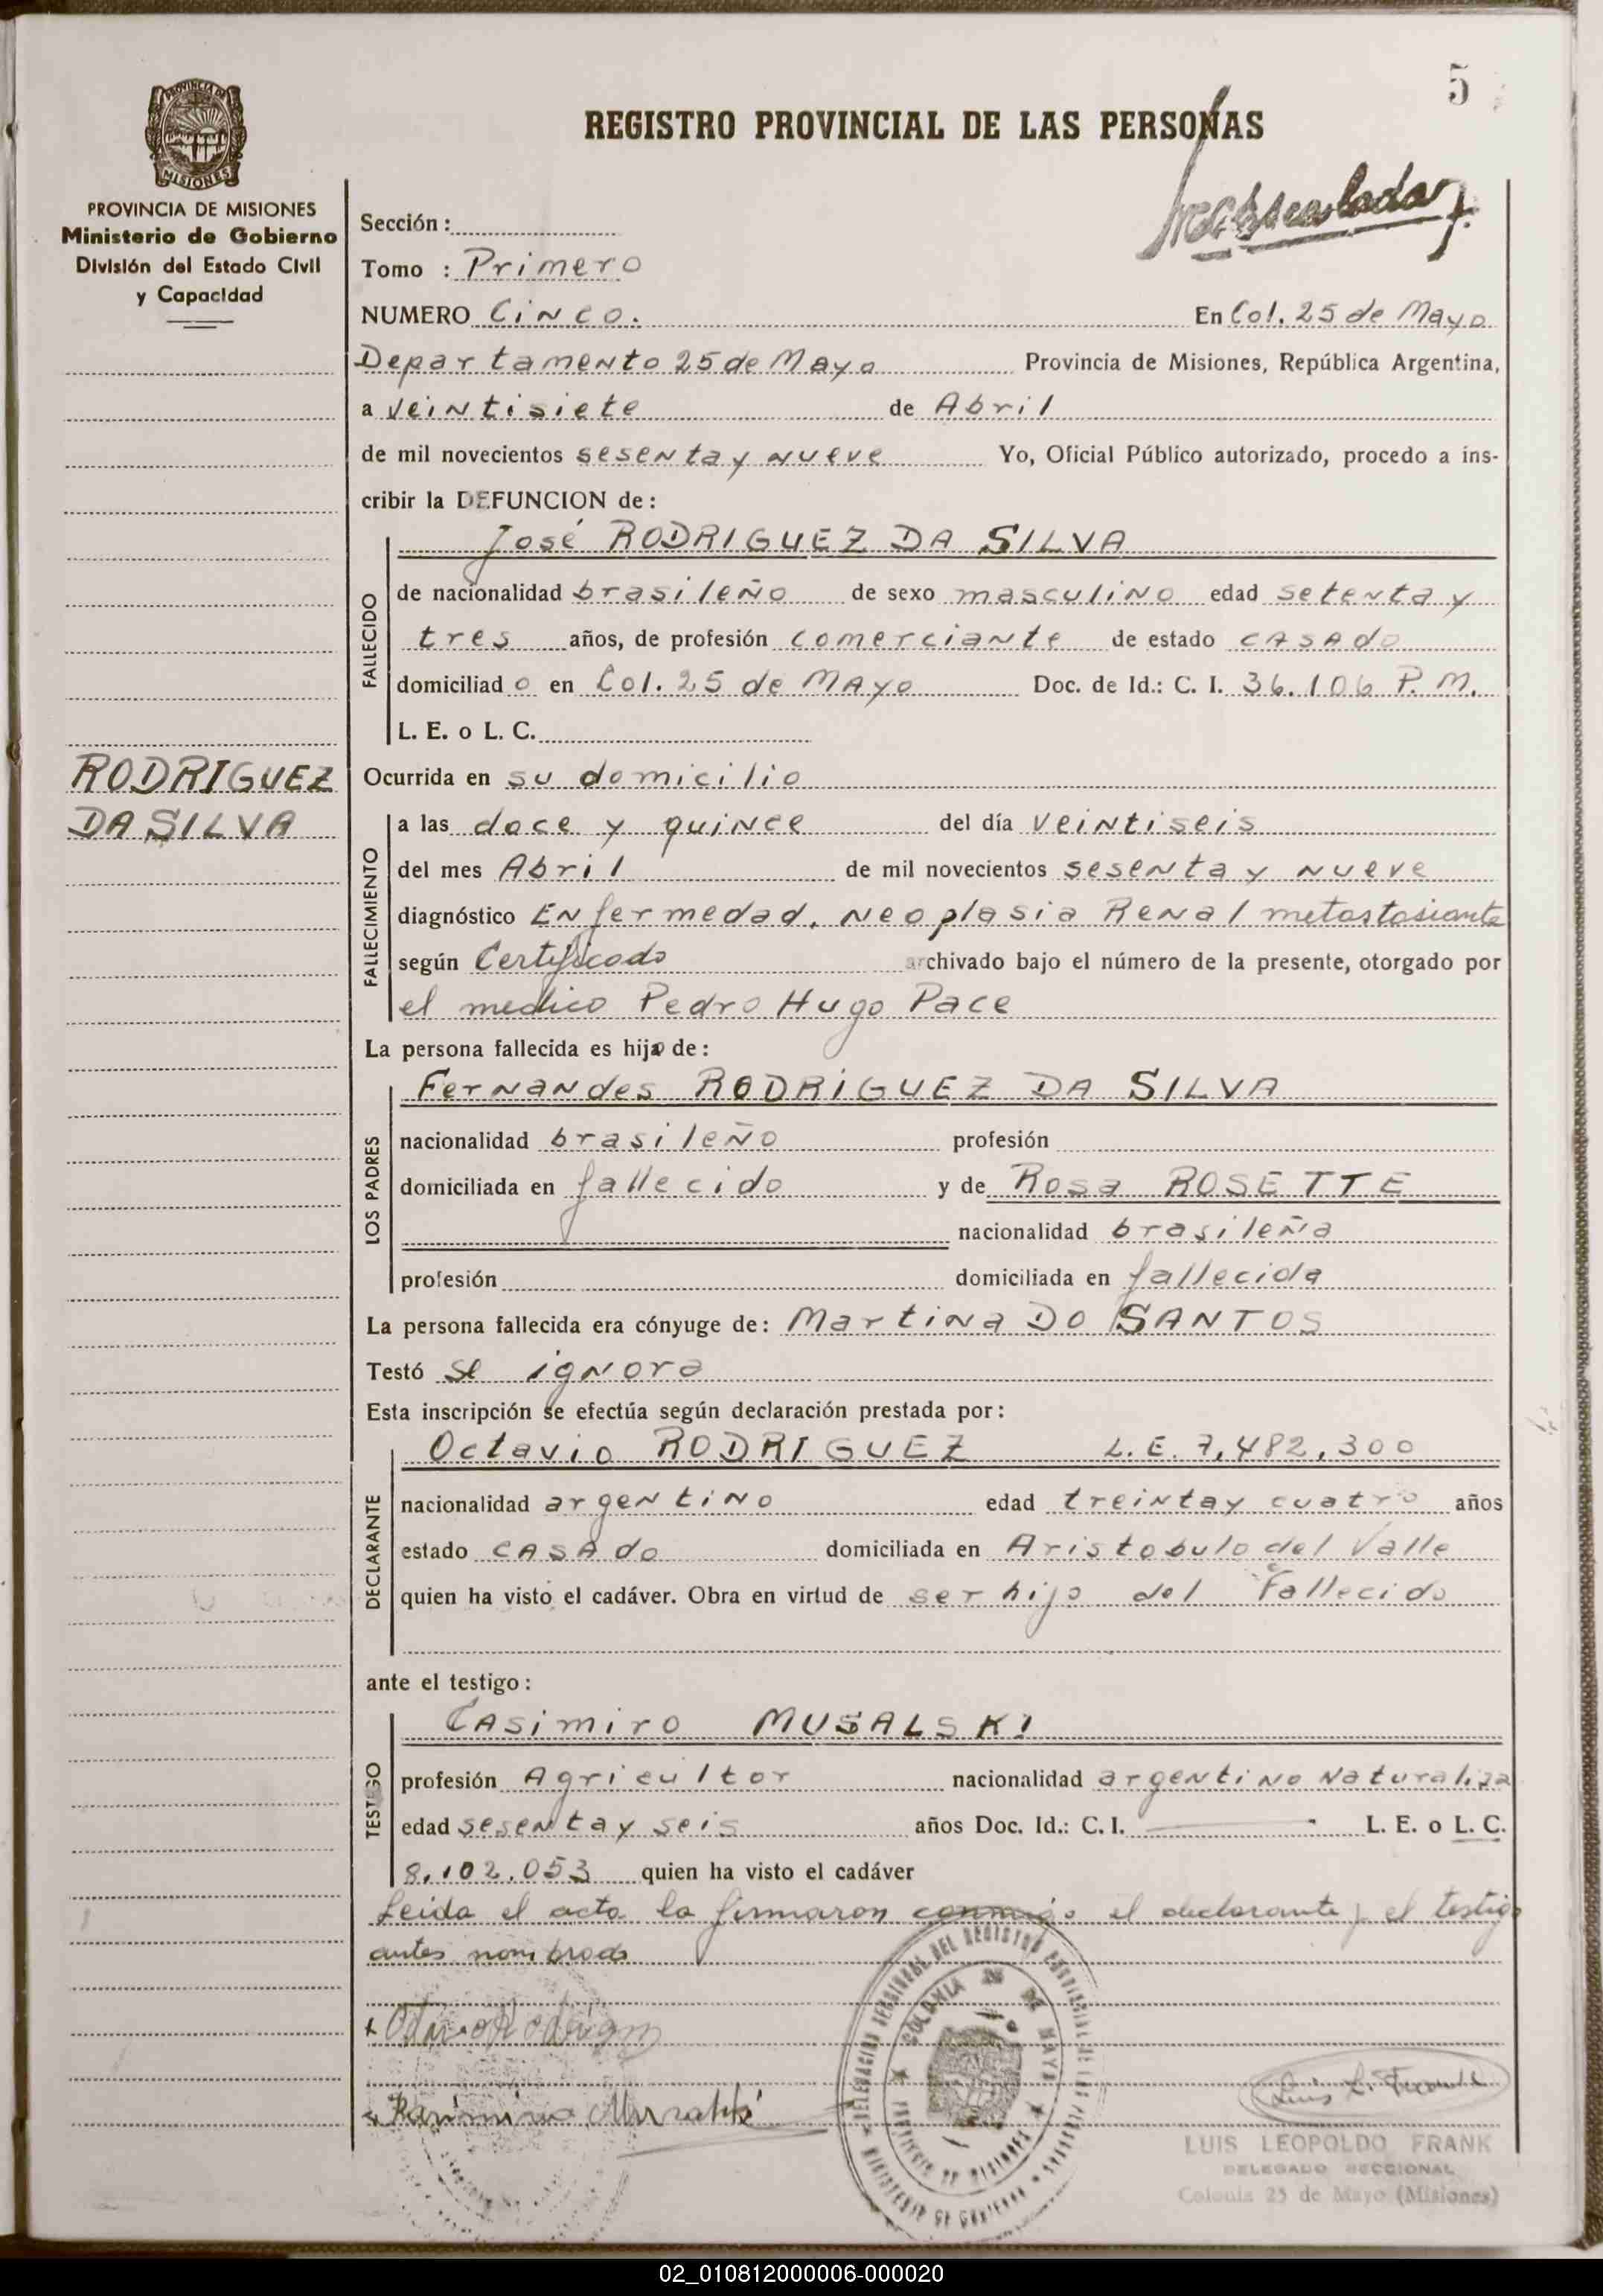 5
REGISTRO PROVINCIAL DE LAS PERSONAS
PROVINCIA DE MISIONES
MISIONES
PROVINCIA DE MISIONES
Ministerio de Gobierno
División del Estado Civil
y Capacidad
Sección :
Tomo : Primero
NUMERO Cinco. En Col. 25 de Mayo
Departamento 25 de Mayo Provincia de Misiones, República Argentina,
a Veintisiete de Abril
de mil novecientos sesenta y nueve Yo, Oficial Público autorizado, procedo a ins-
cribir la DEFUNCION de :
José RODRIGUEZ DA SILVA
FALLECIDO
de nacionalidad brasileño de sexo masculino edad setenta y
tres años, de profesión comerciante de estado casado
domiciliado en Col. 25 de Mayo Doc. de Id.: C. I. 36.106 P. M.
L. E. o L. C.
RODRIGUEZ
DA SILVA
Ocurrida en su domicilio
FALLECIMIENTO
a las doce y quince del día veintiseis
del mes Abril de mil novecientos sesenta y nueve
diagnóstico Enfermedad, neoplasia Renal metastasiante
según Certificado archivado bajo el número de la presente, otorgado por
el medico Pedro Hugo Pace
La persona fallecida es hijo de :
LOS PADRES
Fernandes RODRIGUEZ DA SILVA
nacionalidad brasileño profesión
domiciliada en fallecido y de Rosa ROSETTE
nacionalidad brasileña
profesión domiciliada en fallecida
La persona fallecida era cónyuge de : Martina DO SANTOS
Testó se ignora
Esta inscripción se efectúa según declaración prestada por :
DECLARANTE
Octavio RODRIGUEZ L. E. 7,482,300
nacionalidad argentino edad treinta y cuatro años
estado casado domiciliada en Aristobulo del Valle
quien ha visto el cadáver. Obra en virtud de ser hijo del Fallecido
ante el testigo :
TESTIGO
Casimiro MUSALSKI
profesión Agricultor nacionalidad argentino Naturaliza
edad sesenta y seis años Doc. Id.: C. I. L. E. o L. C.
8.102.053 quien ha visto el cadáver
Leida el acta la firmaron conmigo el declarante y el testigo
antes nombrado
DELEGACION SECCIONAL DEL REGISTRO PROVINCIAL DE LAS PERSONAS
COLONIA 25 DE MAYO
PROVINCIA DE MISIONES
MINISTERIO DE GOBIERNO
LUIS LEOPOLDO FRANK
DELEGADO SECCIONAL
Colonia 25 de Mayo (Misiones)
02_010812000006-000020